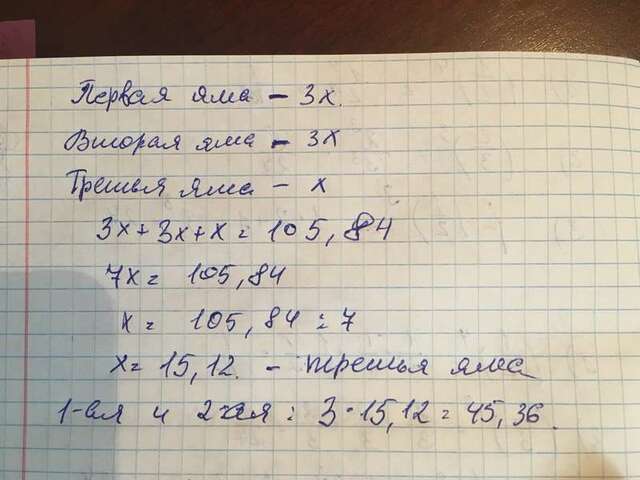 Первая яма – 3х.
Вторая яма – 3х
Третья яма – х
3х+3х+х = 105,84
7х = 105,84
х = 105,84 : 7
х = 15,12. – третья яма
1-ая и 2-ая = 3·15,12 = 45,36.